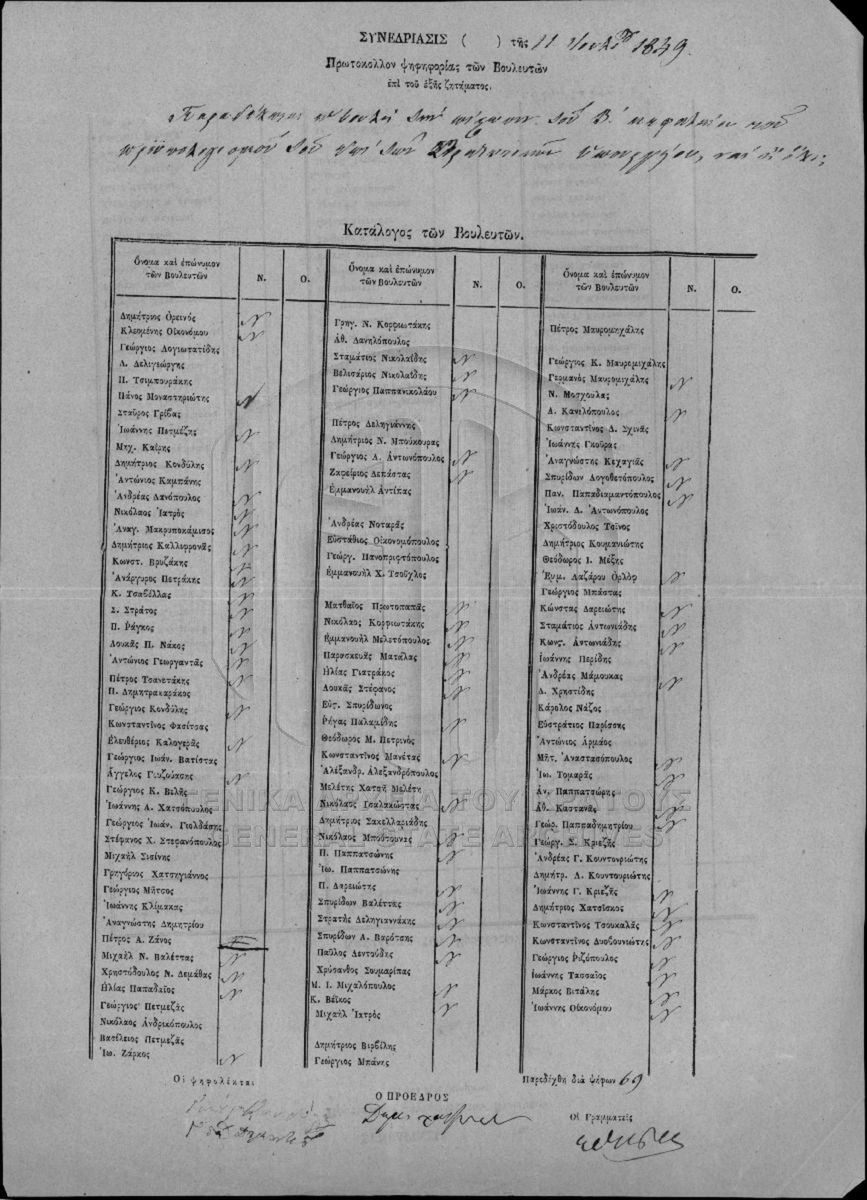 ΣΥΝΕΔΡΙΑΣΙΣ ( ) τῆς 11 1849.
Πρωτοκολλον ψηφηφορίας τῶν Βουλευτῶν
ἐπὶ τοῦ ἑξῆς ζητήματος.
Παραδέχεται ἡ βουλὴ τοῦ Β. κεφαλαίου τοῦ
προϋπολογισμοῦ τοῦ ἐπὶ τῶν Στρατιωτικῶν ὑπουργείου, ναὶ ἢ ὄχι;
Κατάλογος τῶν Βουλευτῶν.
Ὄνομα καὶ ἐπώνυμον τῶν Βουλευτῶν Ν. Ο.
Δημήτριος Ορεινός Ν
Κλεομένης Οἰκονόμου Ν
Γεώργιος Λογιωτατίδης
Λ. Δελιγεώργης
Π. Τσιμπουράκης
Πάνος Μοναστηριώτης Ν
Σταῦρος Γρίβας
Ἰωάννης Πετμέζης Ν
Μιχ. Καΐρης
Δημήτριος Κονδύλης Ν
Ἀντώνιος Καμπάνης
Ἀνδρέας Δανόπουλος Ν
Νικόλαος Ἰατρὸς Ν
Ἀναγ. Μακρυποκάμισος Ν
Δημήτριος Καλλιφρονᾶς Ν
Κωνστ. Βρυζάκης Ν
Ἀνάργυρος Πετράκης Ν
Κ. Τσαβέλλας Ν
Σ. Στράτος Ν
Π. Ῥάγκος Ν
Λουκᾶς Π. Νάκος Ν
Ἀντώνιος Γεωργαντᾶς Ν
Πέτρος Τσανετάκης Ν
Π. Δημητρακαράκος
Γεώργιος Κονδύλης Ν
Κωνσταντῖνος Φασίτσας
Ἐλευθέριος Καλογερᾶς Ν
Γεώργιος Ἰωάν. Βατίστας
Ἄγγελος Γιουζούασης Ν
Γεώργιος Κ. Βελῆς
Ἰωάννης Α. Χατσόπουλος
Γεώργιος Ἰωάν. Γιολδάσης
Στέφανος Χ. Στεφανόπουλος
Μιχαὴλ Σισίνης
Γρηγόριος Χατσηγιάννος
Γεώργιος Μῆτσος
Ἰωάννης Κλίμακας
Ἀναγνώστης Δημητρίου
Πέτρος Α. Ζάνος
Μιχαὴλ Ν. Βαλέττας Ν
Χρηστόδουλος Ν. Δεμάθας Ν
Ηλίας Παπαδαῖος Ν
Γεώργιος Πετμεζᾶς
Νικόλαος Ἀνδρικόπουλος
Βασίλειος Πετμεζᾶς
Ἰω. Ζάρκος Ν
Ὄνομα καὶ ἐπώνυμον τῶν Βουλευτῶν Ν. Ο.
Γρηγ. Ν. Κορφιωτάκης
Ἀθ. Δανηλόπουλος
Σταμάτιος Νικολαΐδης Ν
Βελισάριος Νικολαΐδης Ν
Γεώργιος Παππανικολάου Ν
Πέτρος Δεληγιάννης
Δημήτριος Ν. Μπούκουρας
Γεώργιος Α. Ἀντωνόπουλος Ν
Ζαφείριος Δεπάστας Ν
Ἐμμανουὴλ Ἀντίπας
Ἀνδρέας Νοταρᾶς
Εὐστάθιος Οἰκονομόπουλος
Γεώργ. Πανοπριφτόπουλος
Ἐμμανουὴλ Χ. Τσοῦχλος
Ματθαῖος Πρωτοπαπᾶς Ν
Νικόλαος Κορφιωτάκης Ν
Ἐμμανουὴλ Μελετόπουλος Ν
Παρασκευᾶς Ματάλας Ν
Ἠλίας Γιατράκος Ν
Λουκᾶς Στέφανος Ν
Εὐστ. Σπυρίδωνος
Ῥήγας Παλαμίδης Ν
Θεόδωρος Μ. Πετρινὸς
Κωνσταντῖνος Μανέτας Ν
Ἀλέξανδρ. Ἀλεξανδρόπουλος
Μελέτης Χατσῆ Μελέτη
Νικόλαος Τσαλακώστας Ν
Δημήτριος Σακελλαριάδης
Νικόλαος Μπούτουνας Ν
Π. Παππατσώνης Ν
Ἰω. Παππατσώνης
Π. Δαρειώτης Ν
Σπυρίδων Βαλέττας Ν
Στρατῆς Δεληγιαννάκης Ν
Σπυρίδων Α. Βαρότσης Ν
Παῦλος Δεντούδης Ν
Χρύσανθος Σουμαρίπας
Μ. Ι. Μιχαλόπουλος Ν
Κ. Βέϊκος Ν
Μιχαὴλ Ἰατρὸς
Δημήτριος Βιρβίλης
Γεώργιος Μπάνης
Ὄνομα καὶ ἐπώνυμον τῶν Βουλευτῶν Ν. Ο.
Πέτρος Μαυρομηχάλης
Γεώργιος Κ. Μαυρομιχάλης
Γερμανὸς Μαυρομιχάλης Ν
Ν. Μοσχουλας
Α. Κανελόπουλος Ν
Κωνσταντῖνος Δ. Σχινᾶς
Ἰωάννης Γκούρας
Ἀναγνώστης Κεχαγιᾶς Ν
Σπυρίδων Λογοθετόπουλος Ν
Παν. Παπαδιαμαντόπουλος Ν
Ἰωάν. Δ. Ἀντωνόπουλος
Χριστόδουλος Τσῖνος
Δημήτριος Κουμανιώτης
Θεόδωρος Ι. Μέξης
Ἐμμ. Λαζάρου Ὀρλὼφ Ν
Γεώργιος Μπάστας
Κώνστας Δαρειώτης Ν
Σταμάτιος Ἀντωνιάδης Ν
Κωνς. Ἀντωνιάδης Ν
Ἰωάννης Περίδης
Ἀνδρέας Μάμουκας Ν
Δ. Χρηστίδης
Κάρολος Νάζος
Εὐστράτιος Παρίσσης
Ἀντώνιος Ἀρμάος
Μῆτ. Ἀναστασόπουλος Ν
Ἰω. Τομαρᾶς Ν
Ἀν. Παππατσώρης Ν
Ἀθ. Καστανᾶς Ν
Γεώρ. Παππαδημητρίου Ν
Γεώργ. Σ. Κριεζῆς
Ἀνδρέας Γ. Κουντουριώτης
Δημήτρ. Λ. Κουντουριώτης
Ἰωάννης Γ. Κριεζῆς Ν
Δημήτριος Χατσίσκος Ν
Κωνσταντῖνος Τσουκαλᾶς Ν
Κωνσταντῖνος Δυοβουνιώτης Ν
Γεώργιος Ῥιζόπουλος Ν
Ἰωάννης Τασσαῖος Ν
Μάρκος Βιτάλης Ν
Ἰωάννης Οἰκονόμου Ν
Οἱ ψηφολέκται
Ο ΠΡΟΕΔΡΟΣ
Παρεδέχθη διὰ ψήφων 69
Οἱ Γραμματεῖς
ΓΕΝΙΚΑ ΑΡΧΕΙΑ ΤΟΥ ΚΡΑΤΟΥΣ
GENERAL STATE ARCHIVES